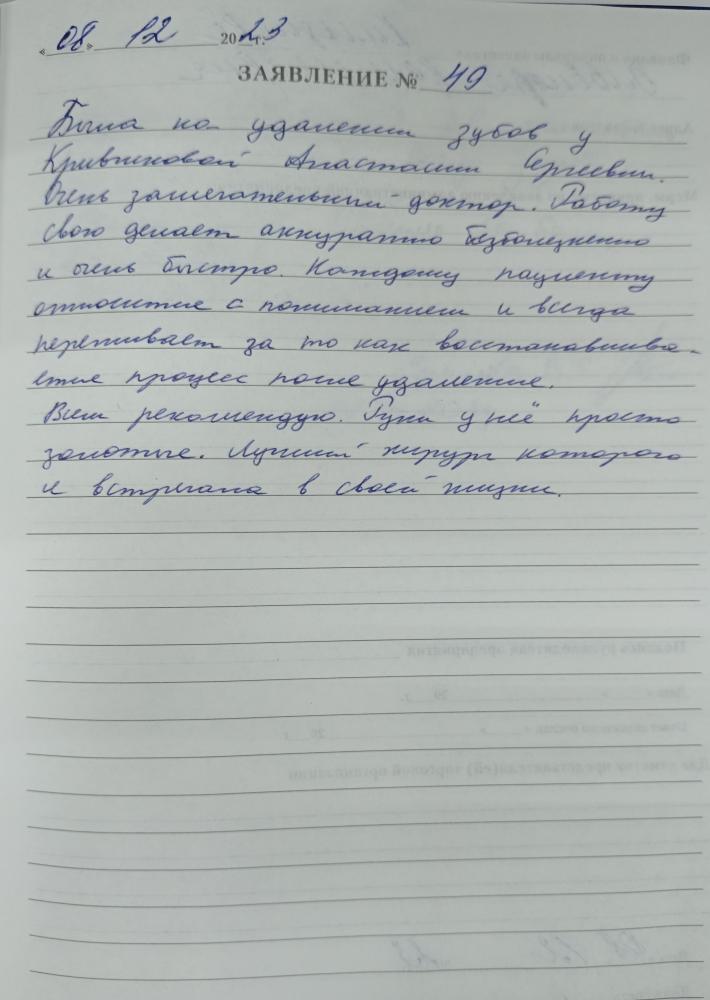 «08» 12 2023 г.
ЗАЯВЛЕНИЕ № 49
Была на удалении зубов у
Кривчиковой Анастасии Сергеевны.
Очень замечательный доктор. Работу
свою делает аккуратно безболезненно
и очень быстро. Каждому пациенту
относится с пониманием и всегда
переживает за то как восстанавлива-
ется процесс после удаления.
Всем рекомендую. Руки у неё просто
золотые. Лучший хирург которого
я встречала в своей жизни.